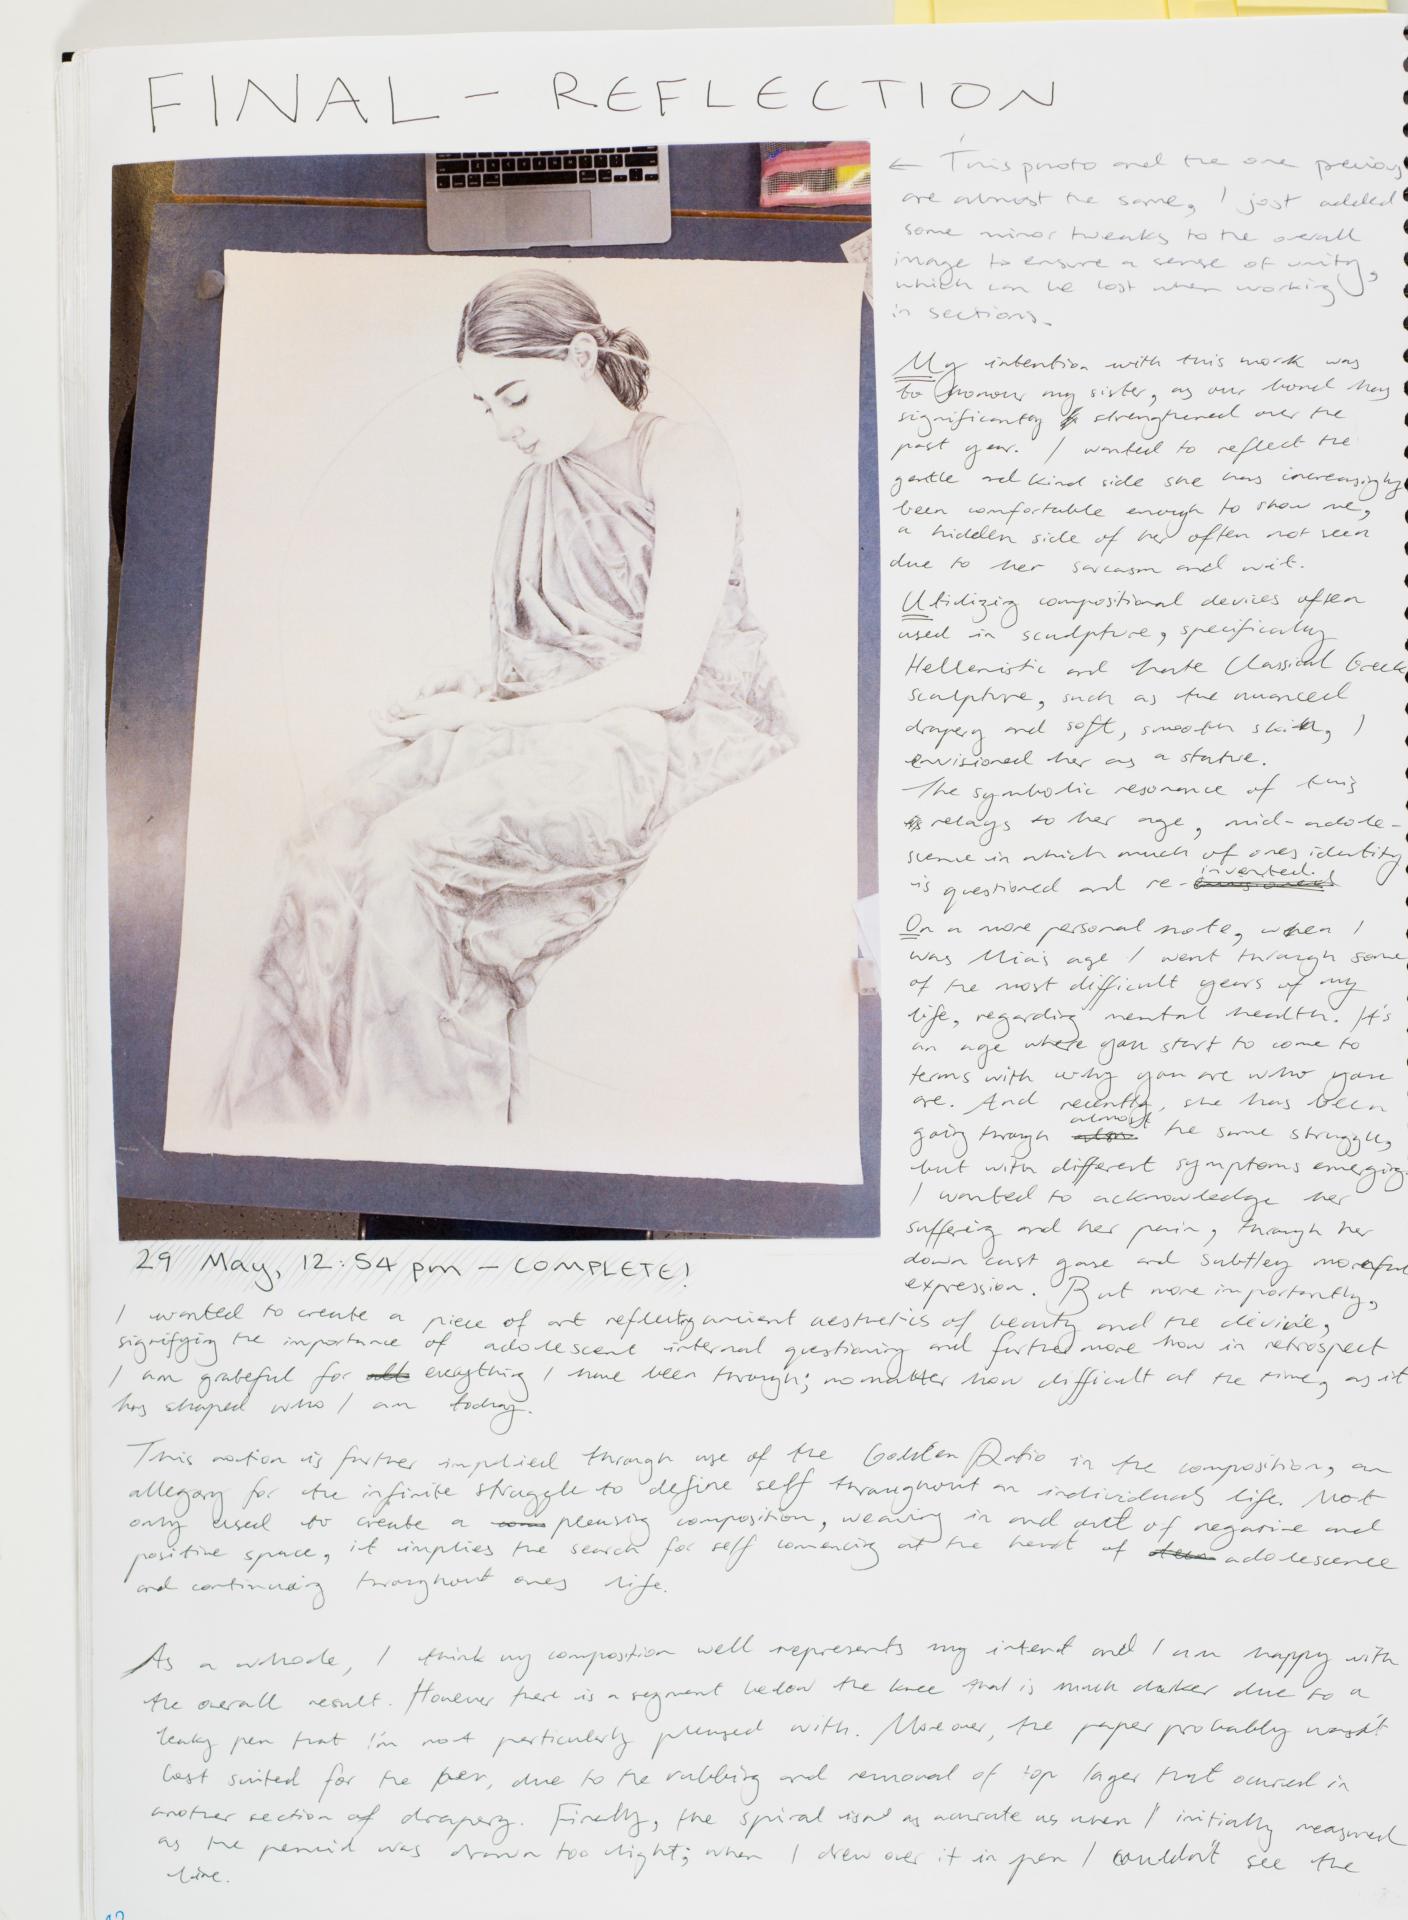 FINAL - REFLECTION
← This photo and the one previous
are almost the same, I just added
some minor tweaks to the overall
image to ensure a sense of unity,
which can be lost when working
in sections.
My intention with this work was
to honour my sister, as our bond has
significantly strengthened over the
past year. I wanted to reflect the
gentle and kind side she has increasingly
been comfortable enough to show me,
a hidden side of her often not seen
due to her sarcasm and wit.
Utilizing compositional devices often
used in sculpture, specifically
Hellenistic and Classical Greek
sculpture, such as the nuanced
drapery and soft, smooth skin, I
envisioned her as a statue.
The symbolic resonance of this
relays to her age, mid-adole-
scence in which much of ones identity
is questioned and re-invented.
On a more personal note, when I
was Mia's age I went through some
of the most difficult years of my
life, regarding mental health. It's
an age where you start to come to
terms with why you are who you
are. And recently, she has been
going through almost the same struggle,
but with different symptoms emerging.
I wanted to acknowledge her
suffering and her pain, through her
down cast gaze and subtley
expression. But more importantly,
29 May, 12:54 pm - COMPLETE!
I wanted to create a piece of art reflecting ancient aesthetics of beauty and the divine,
signifying the importance of adolescent internal questioning and furthermore how in retrospect
I am grateful for everything I have been through; no matter how difficult at the time, as it
has shaped who I am today.
This notion is further implied through use of the Golden Ratio in the composition, an
allegory for the infinite struggle to define self throughout an individuals life. Not
only used to create a pleasing composition, weaving in and out of negative and
positive space, it implies the search for self comencing at the heart of adolescence
and continuing throughout ones life.
As a whole, I think my composition well represents my intent and I am happy with
the overall result. However there is a segment below the knee that is much darker due to a
leaky pen that I'm not particularly pleased with. Moreover, the paper probably wasn't
best suited for the pen, due to the rubbing and removal of top layer that occured in
another section of drapery. Finally, the spiral isn't as accurate as when I initially measured
as the pencil was drawn too light; when I drew over it in pen I couldn't see the
line.